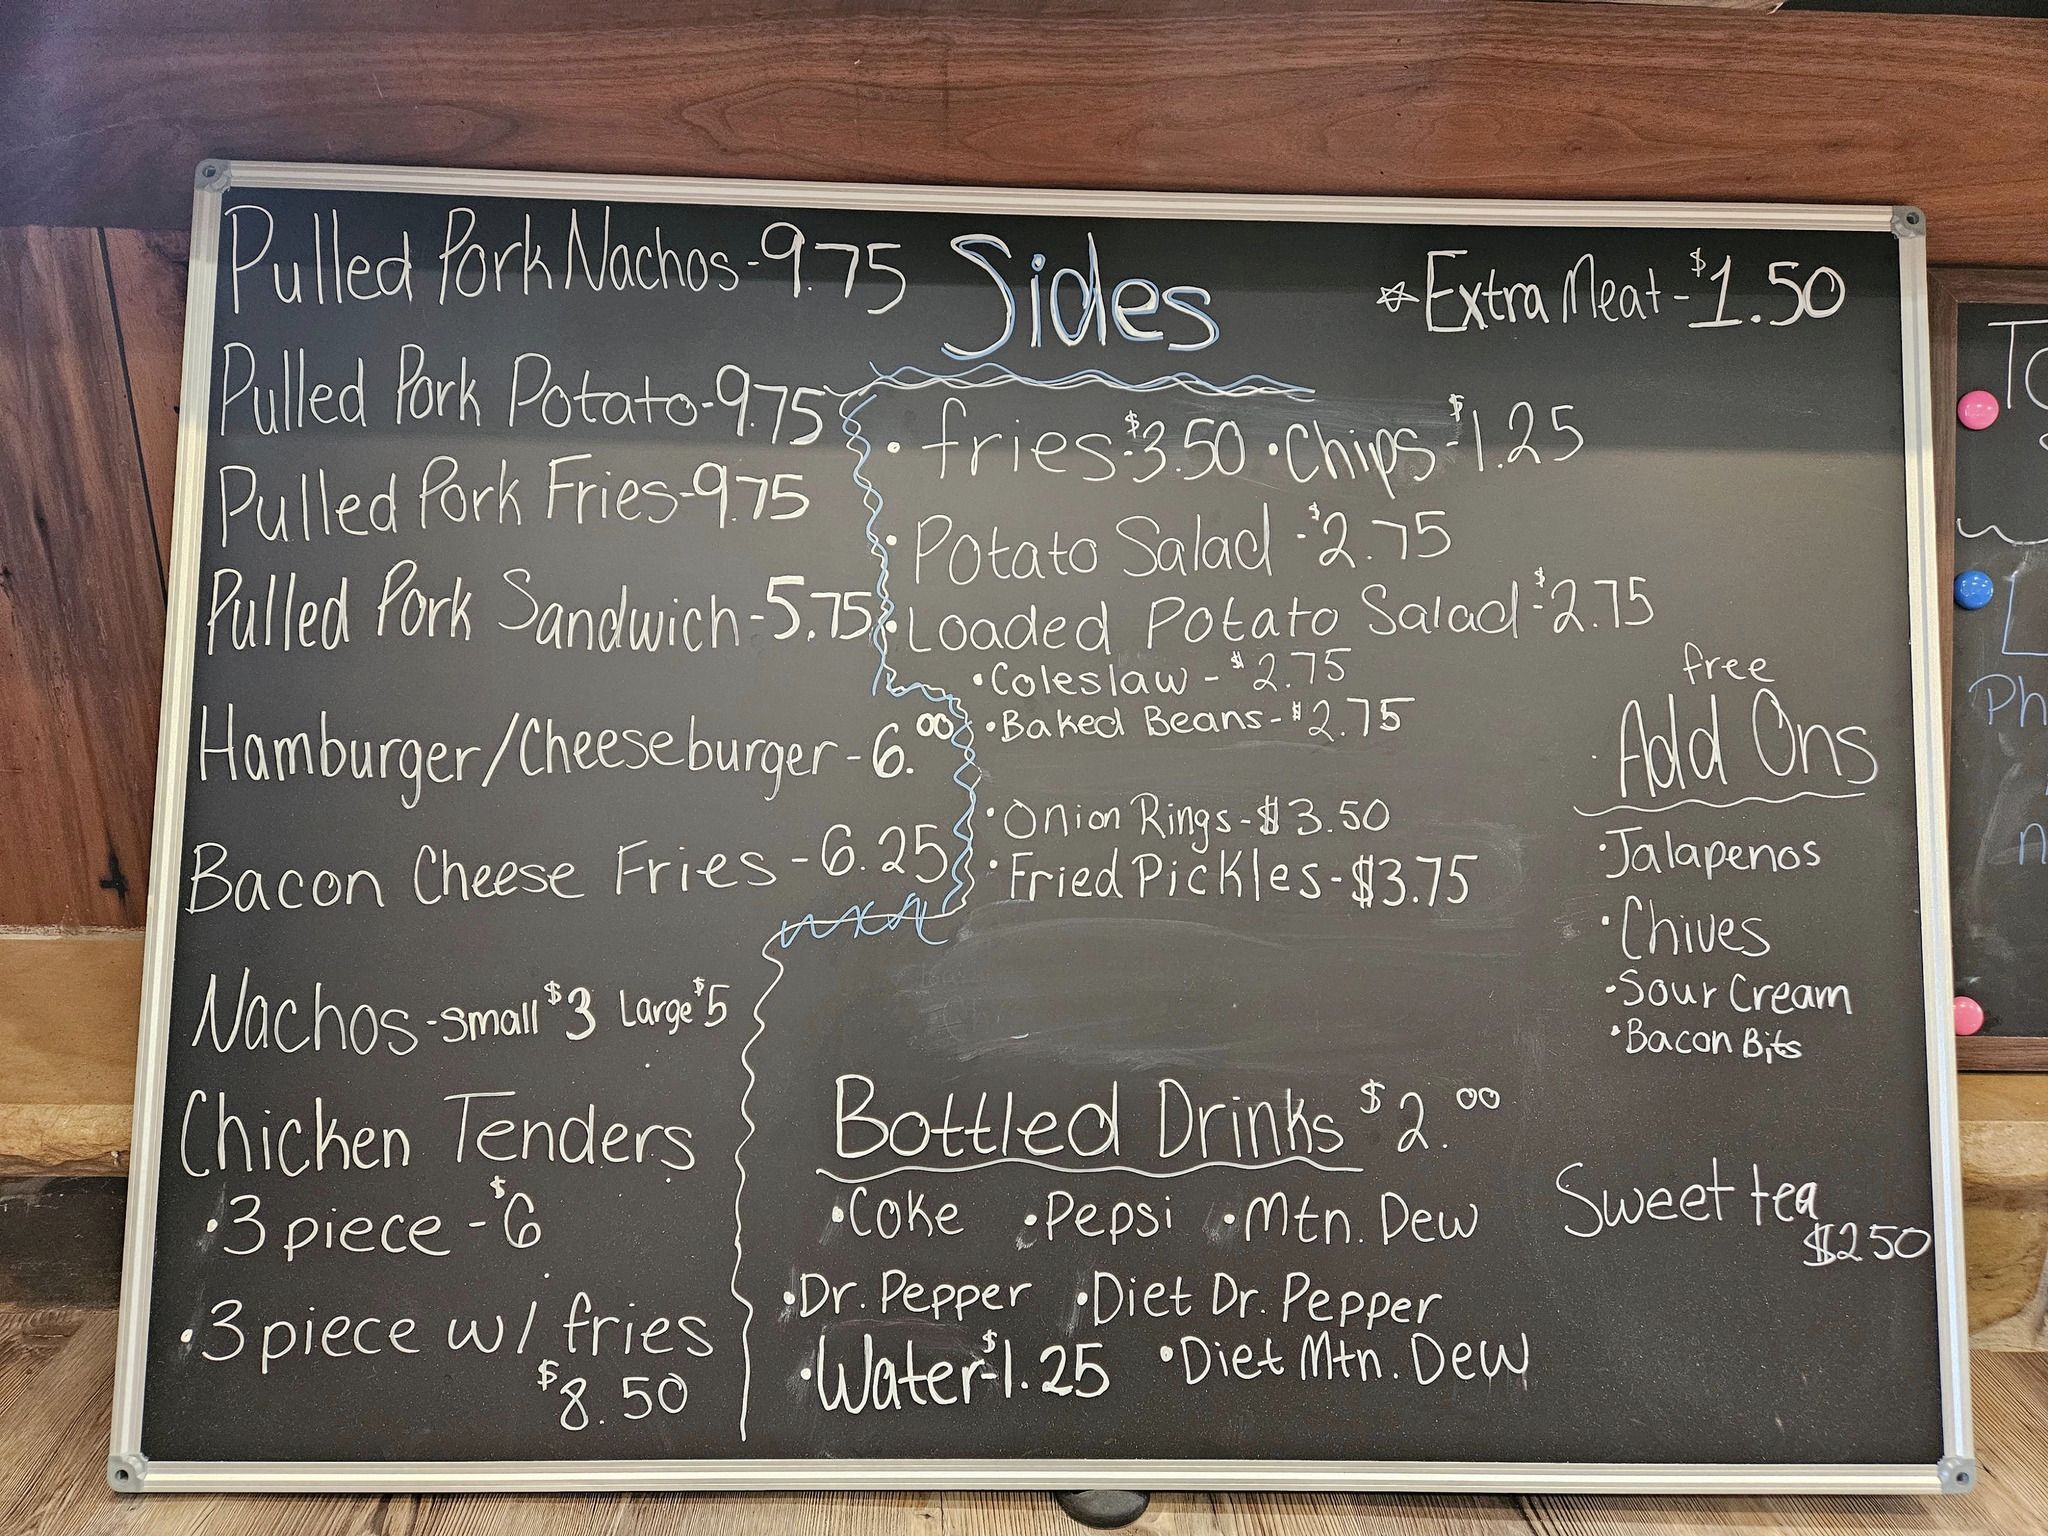 Pulled Pork Nachos - 9.75
Pulled Pork Potato - 9.75
Pulled Pork Fries - 9.75
Pulled Pork Sandwich - 5.75
Hamburger/Cheeseburger - 6.00
Bacon Cheese Fries - 6.25
Nachos - small $3 Large $5
Chicken Tenders
• 3 piece - $6
• 3 piece w/ fries
$8.50
Sides
☆ Extra Meat - $1.50
• fries - $3.50 • Chips - $1.25
• Potato Salad - $2.75
• Loaded Potato Salad - $2.75
• Coleslaw - $2.75
• Baked Beans - $2.75
• Onion Rings - $3.50
• Fried Pickles - $3.75
free
Add Ons
• Jalapenos
• Chives
• Sour Cream
• Bacon Bits
Bottled Drinks $2.00
• Coke • Pepsi • Mtn. Dew
• Dr. Pepper • Diet Dr. Pepper
• Water - $1.25 • Diet Mtn. Dew
Sweet tea
$2.50
Ph